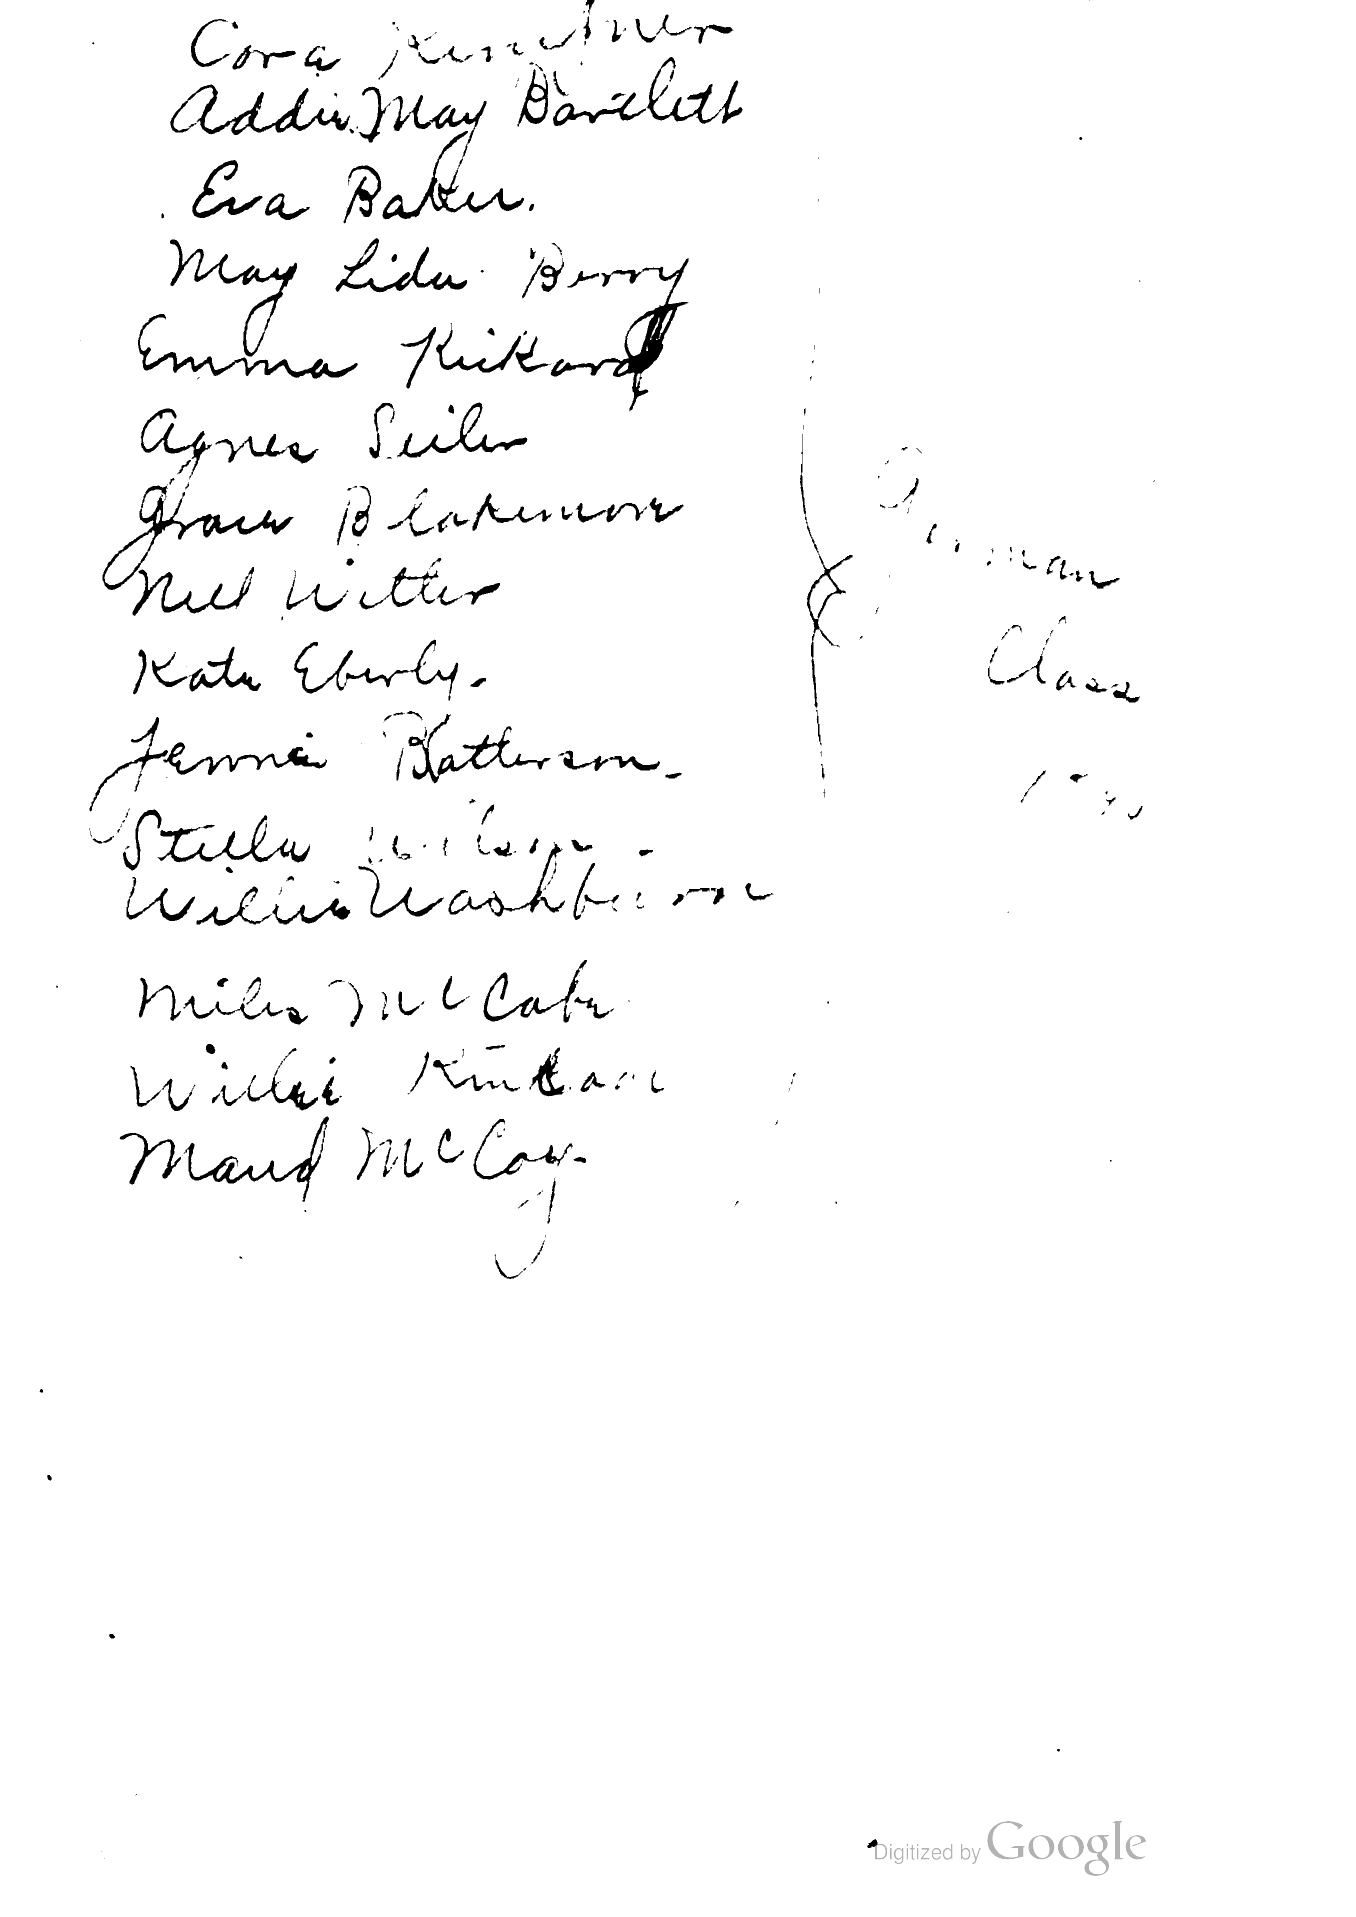 Cora Kintner
Addie May Bartlett
Eva Baker.
May Lida Berry
Emma Rickard
Agnes Seiler
Gracie Blakemore
Nell Witter
Kate Eberly.
Jennie Batterson.
Stella Wilson.
Willie Washburn
Miles McCabe
Willie
Maud McCoy.
German
Class
Digitized by Google